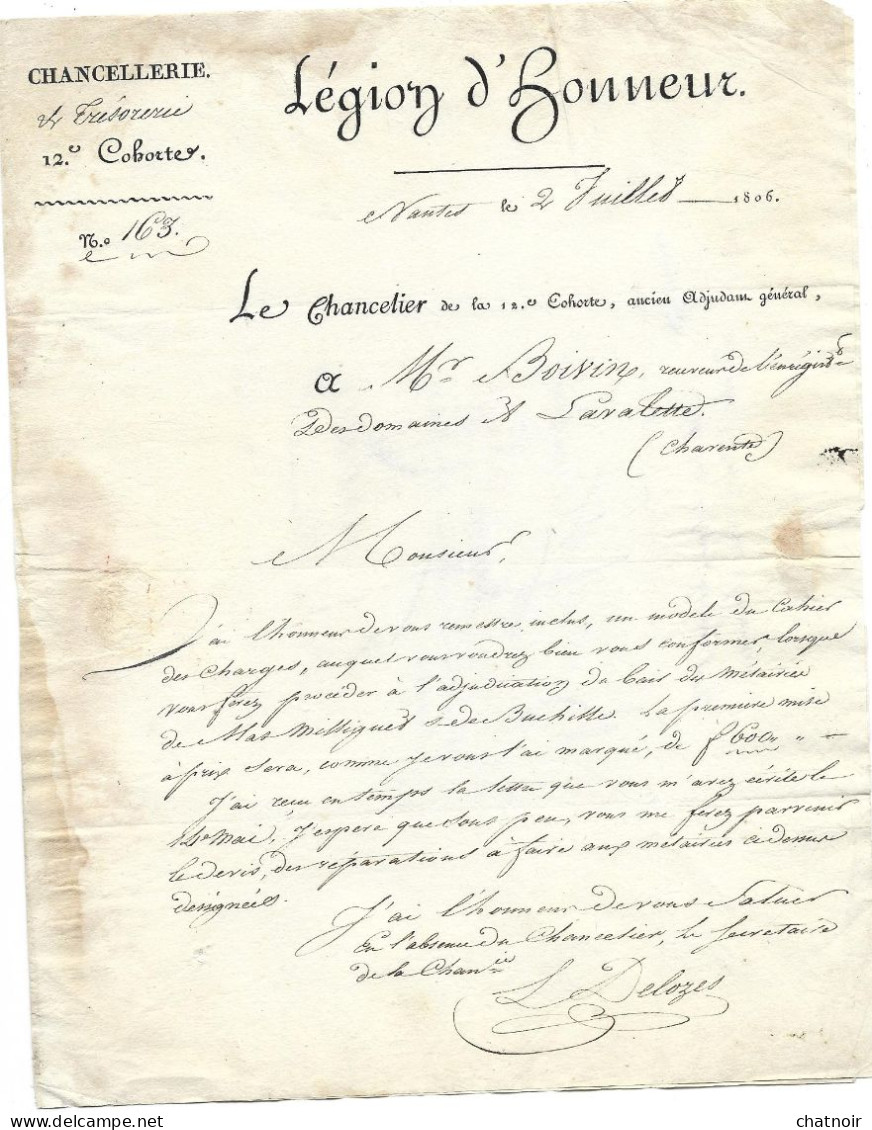 CHANCELLERIE.
& Trésorerie
12.e Cohorte.
N.o 163.
Légion d'Honneur.
Nantes le 2 Juillet 1806.
Le Chancelier de la 12.e Cohorte, ancien Adjudant général,
A Mr Boivin, receveur de l'enrégist
des domaines à Lavalette.
(Charente)
Monsieur,
J'ai l'honneur de vous remettre inclus, un modele du Cahier
des Charges, auquel vous voudrez bien vous conformer, lorsque
vous ferez procéder à l'adjudication du bail du Métairies
de Mas & de La première mise
à prix sera, comme je vous l'ai marqué, de f 600 " "
J'ai reçu en temps la lettre que vous m'avez écrite le
Mai, J'espere que sous peu, vous me ferez parvenir
le devis, des réparations à faire aux métairies ci dessus
designées.
J'ai l'honneur de vous Saluer
En l'absence du Chancelier, le Secretaire
de la Chanie
L Delozes
chatnoir